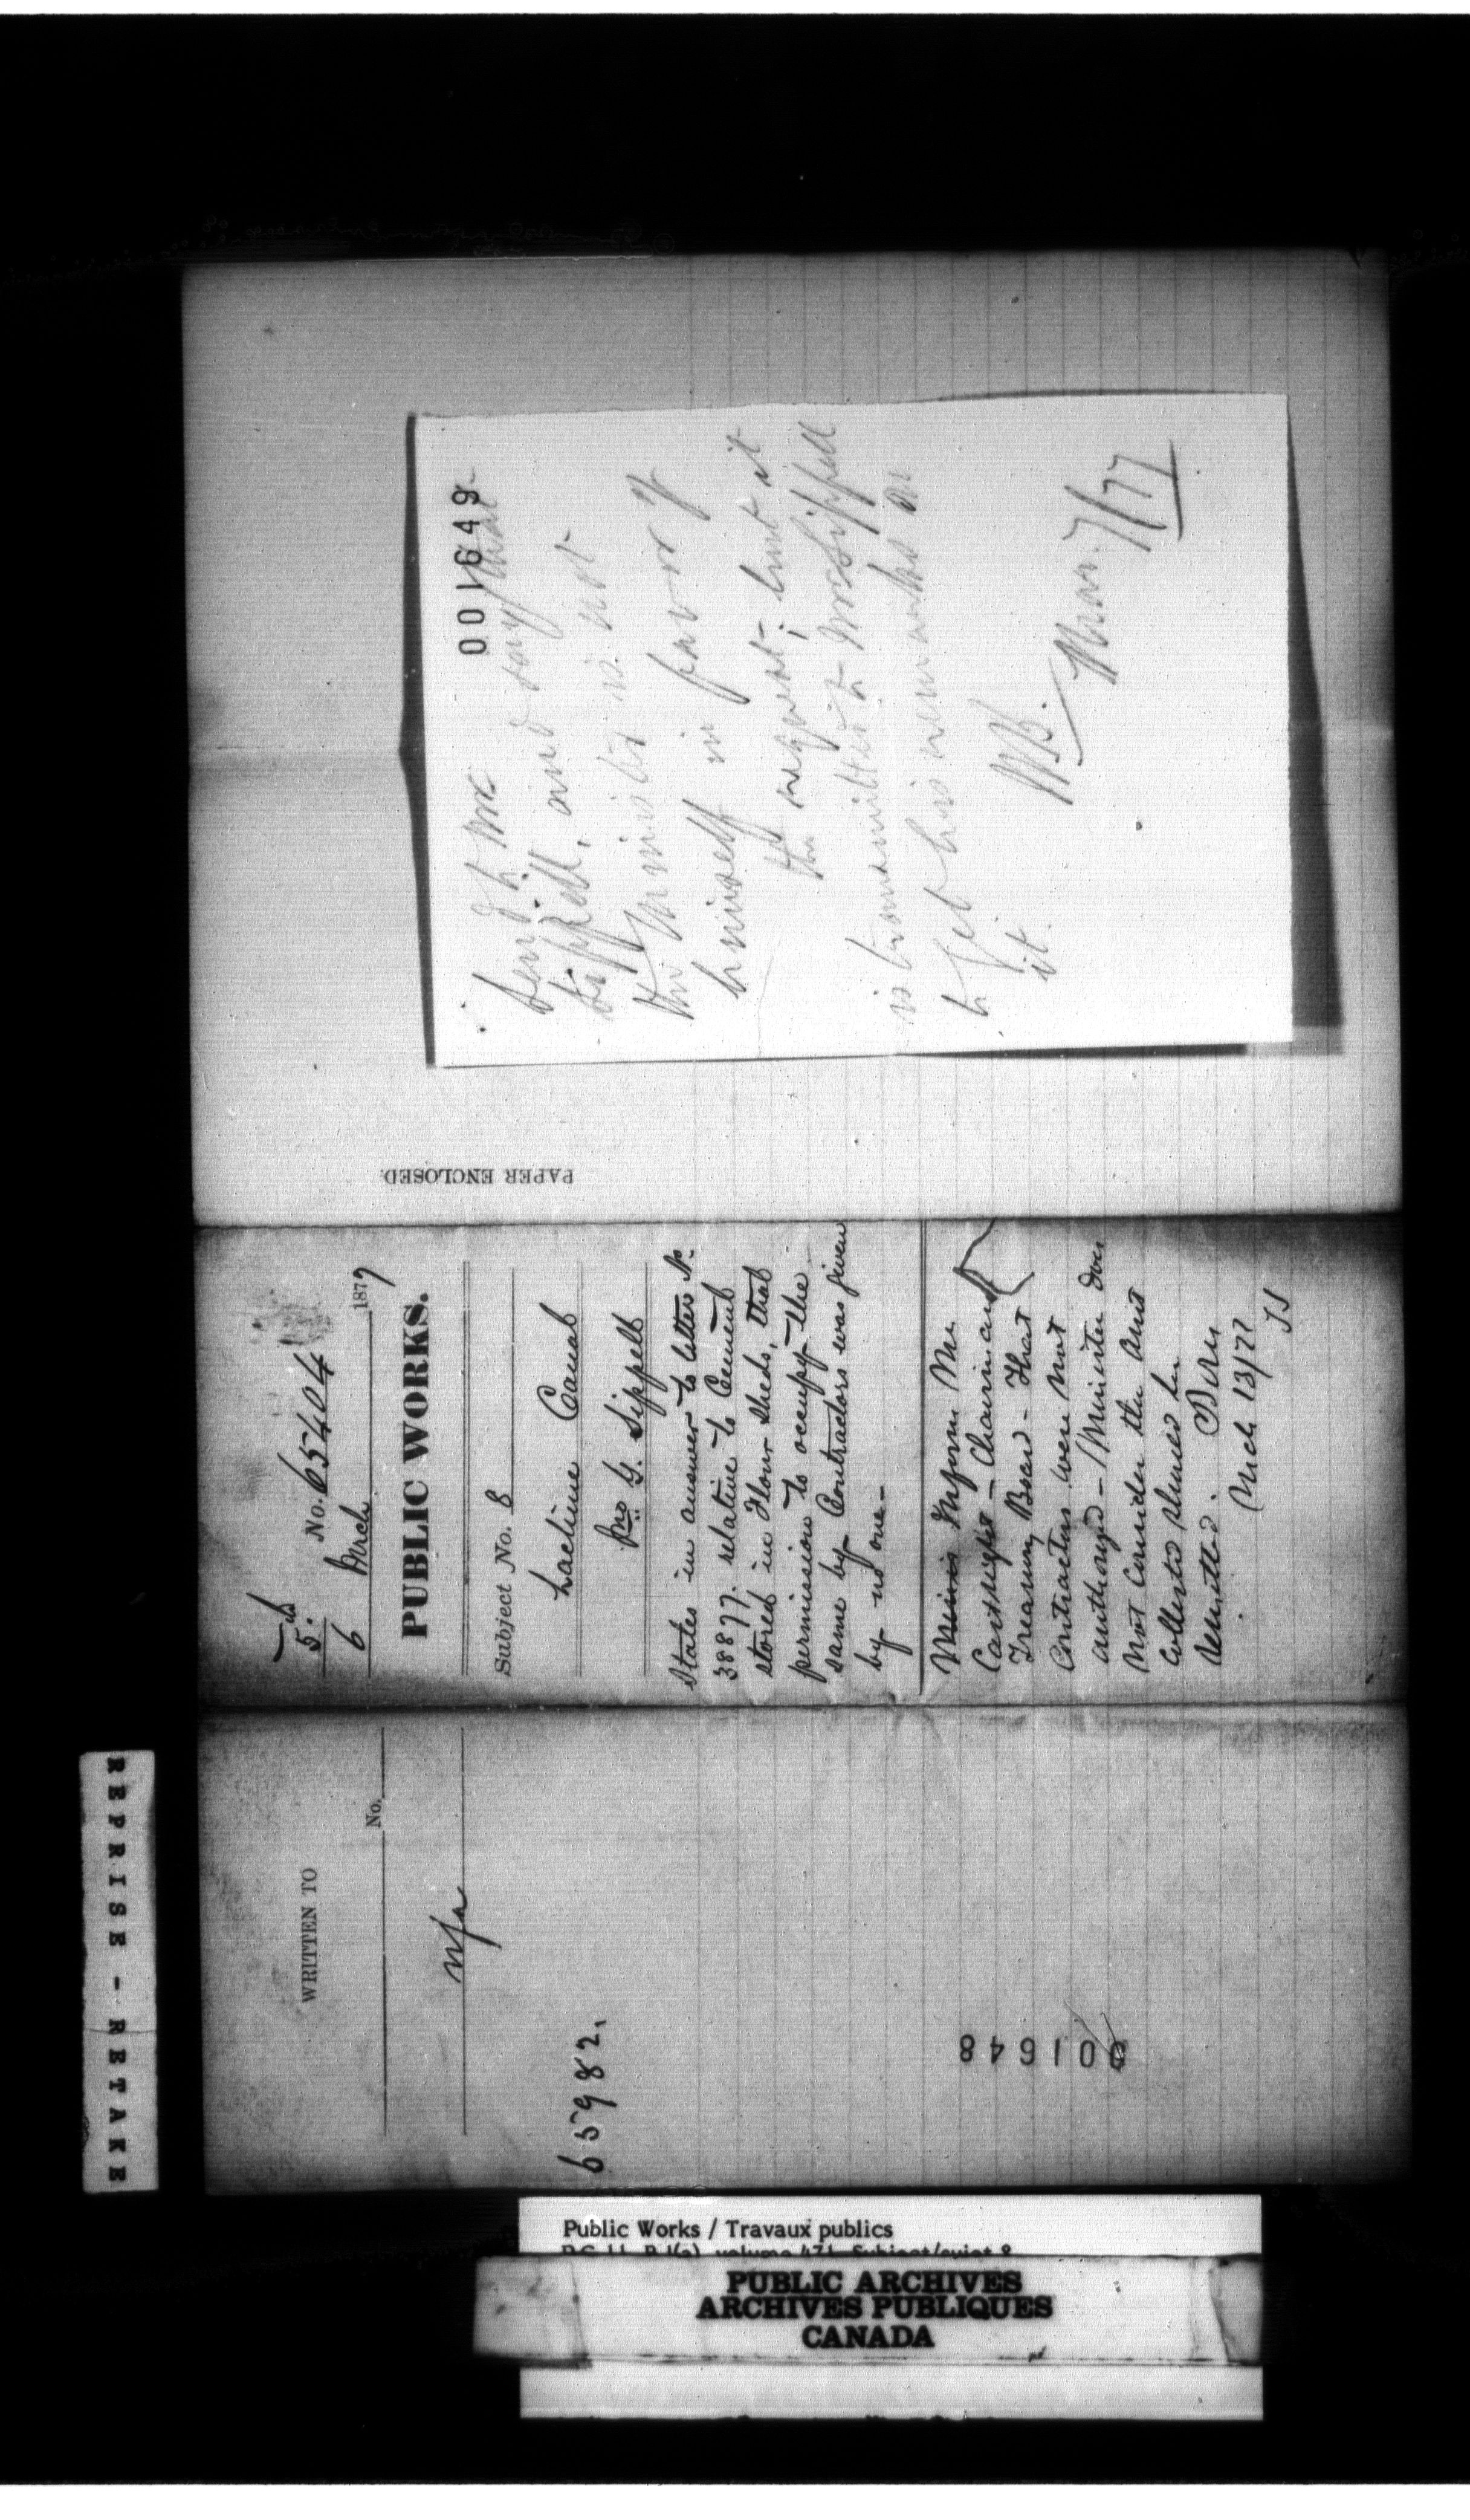 REPRISE - RETAKE
WRITTEN TO
No.
nfa
65982.
001648
5th
6 March 1877
No. 65404
PUBLIC WORKS.
Subject No. 8
Lachine Canal
Jno G. Sippell
States in answer to letter No.
38877. relative to Cement
stored in Flour Sheds, that
permission to occupy the
same by Contractors was given
by no one -
Inform Mr.
Cartwright - Chairman
Treasury Board - That
Contractors were not
authorized - Minister does
not consider the amt
collected should be
remitted.
Mch 13/77
PAPER ENCLOSED.
001649
Send to Mr
Sippell, and say that
the Minister is not
himself in favor of
the request, but it
is transmitted to Mr Sippell
to get his remarks on
it.
Mar. 7/77
Public Works / Travaux publics
PUBLIC ARCHIVES
ARCHIVES PUBLIQUES
CANADA